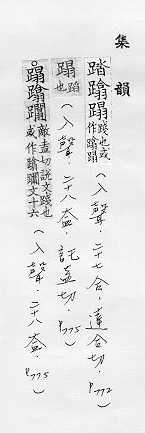 集韻
踏蹹蹋 踐也或作蹹蹋(入聲.二十七合.達合切.P772)
蹋 蹹也(入聲.二十八盍.託盍切.P775)
。蹋蹹躢 敵盍切說文踐也或作蹹躢文十六(入聲.二十八盍.P775)